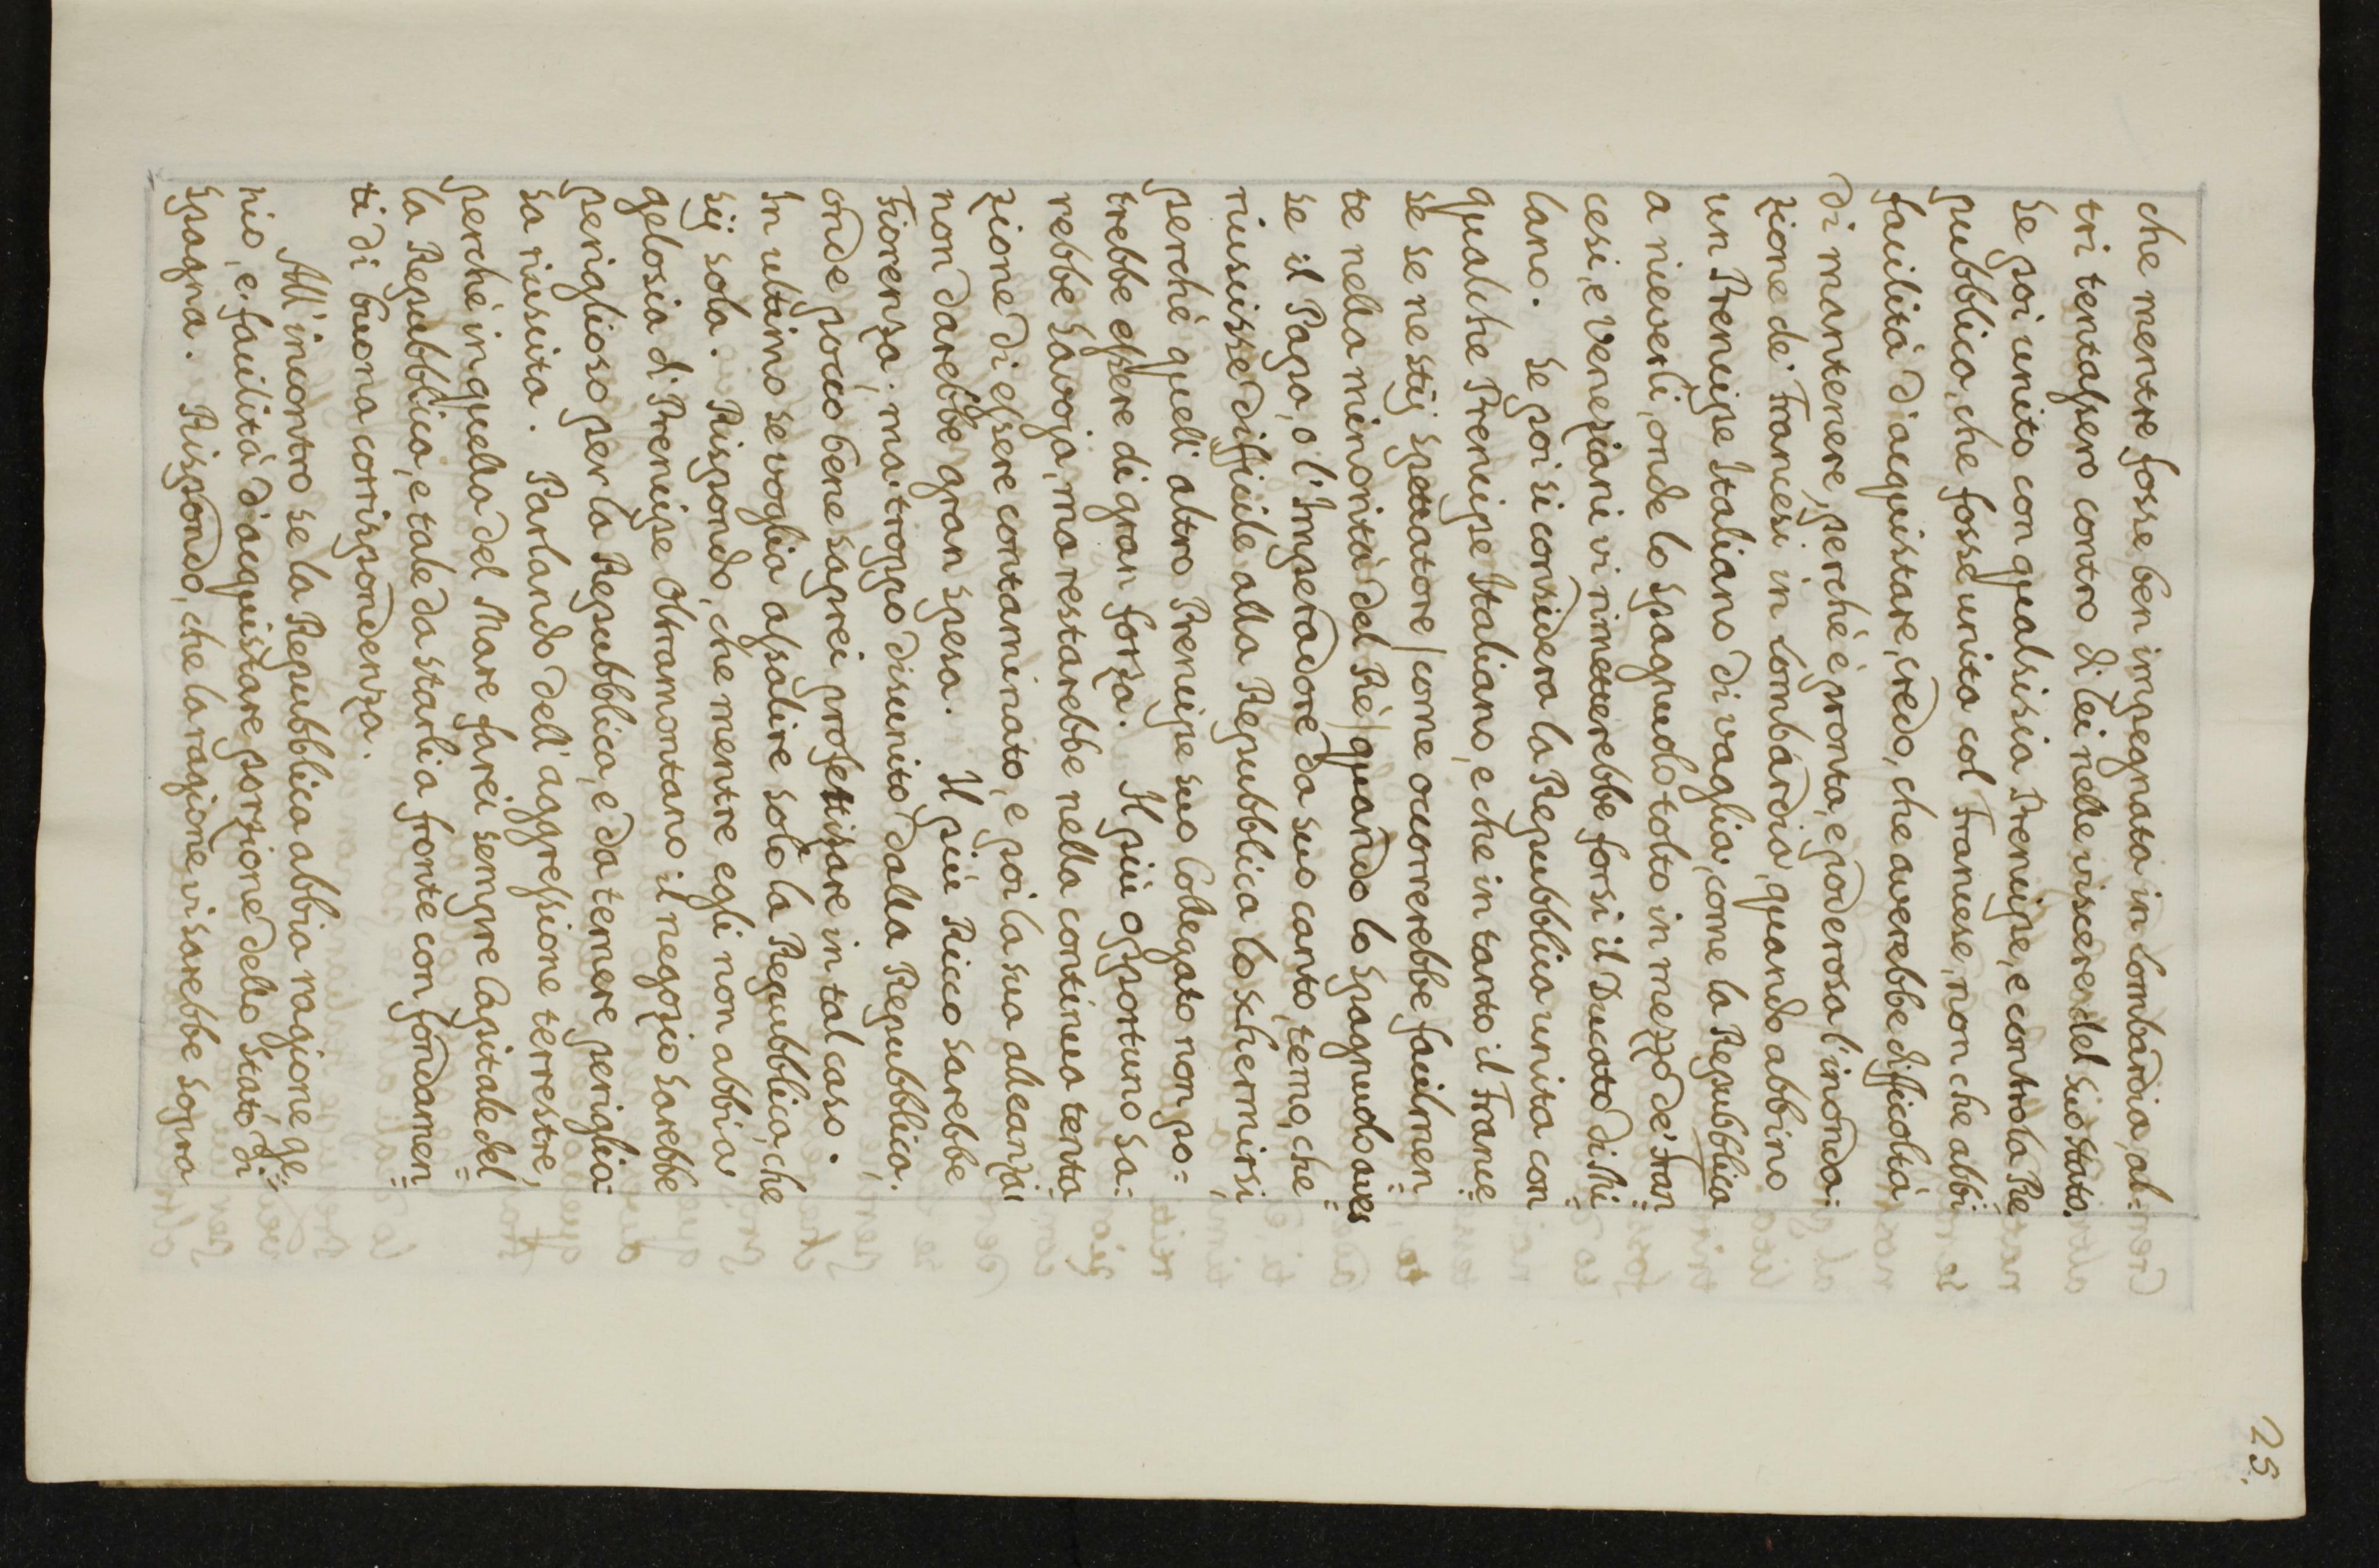 25.
che mentre fosse ben impegnata in Lombardia, al-
tri tentassero contro di lei nelle viscere del suo stato.
Se poi unito con qualsisia Prencipe, e contro la Re
pubblica, che fosse unita col Francese, non che abbi
facilità d'acquistare, credo, che averebbe difficoltà
di mantenere, perché è pronta, e poderosa l'inonda:
zione de' Francesi in Lombardia, quando abbino
un Prencipe Italiano di vaglia, come la Repubblica
a riceverli, onde lo Spagnuolo tolto in mezzo de' Fran
cesi, e Veneziani vi rimetterebbe forsi il Ducato di Mi
lano. Se poi si considera la Repubblica unita con
qualche Prencipe Italiano, e che in tanto il France
se se ne stij spettatore / come occorrerebbe facilmen
te nella minorità del Ré / quando lo Spagnuolo aves
se il Papa, o l'Imperadore da suo canto, temo, che
riuscisse difficile alla Repubblica lo schermirsi,
perché quell'altro Prencipe suo Collegato non po=
trebbe essere di gran forza. Il più opportuno sa:
rebbe Savoja, ma restarebbe nella continua tenta
zione di essere contaminato, e poi la sua alleanza
non darebbe gran spesa. Il più Ricco sarebbe
Fiorenza, ma troppo disunito dalla Repubblica,
onde pocco bene saprei profettizare in tal caso.
In ultimo se voglia assalire solo la Repubblica, che
sij sola. Rispondo, che mentre egli non abbia
gelosia di Prencipe Oltramontano il negozio sarebbe
periglioso per la Repubblica, e da temere periglio:
sa riuscita. Parlando dell'aggressione terrestre,
perché in quella del Mare farei sempre Capitale del
la Repubblica, e tale da starli a fronte con fondamen
ti di buona corrispondenza.
All'incontro se la Repubblica abbia ragione, ge:
nio, e facilità d'acquistare porzione dello Stato di
Spagna. Rispondo, che la ragione vi sarebbe sopra